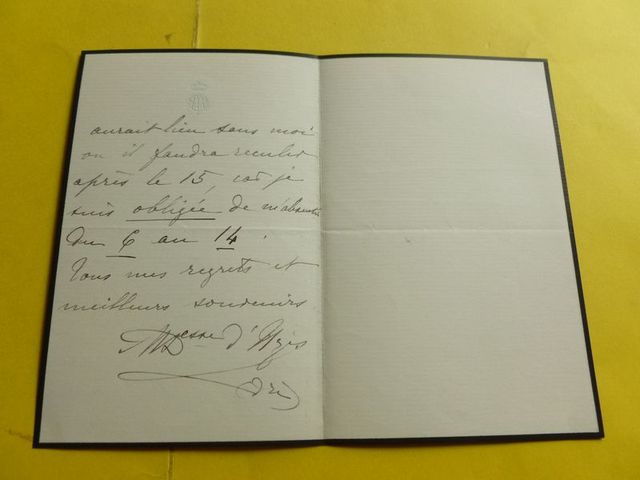 aurait lieu sans moi
ou il faudra reculer
après le 15, car je
suis obligée de m'absenter
du 6 au 14.
Tous mes regrets et
meilleurs souvenirs
Desse d'Uzès